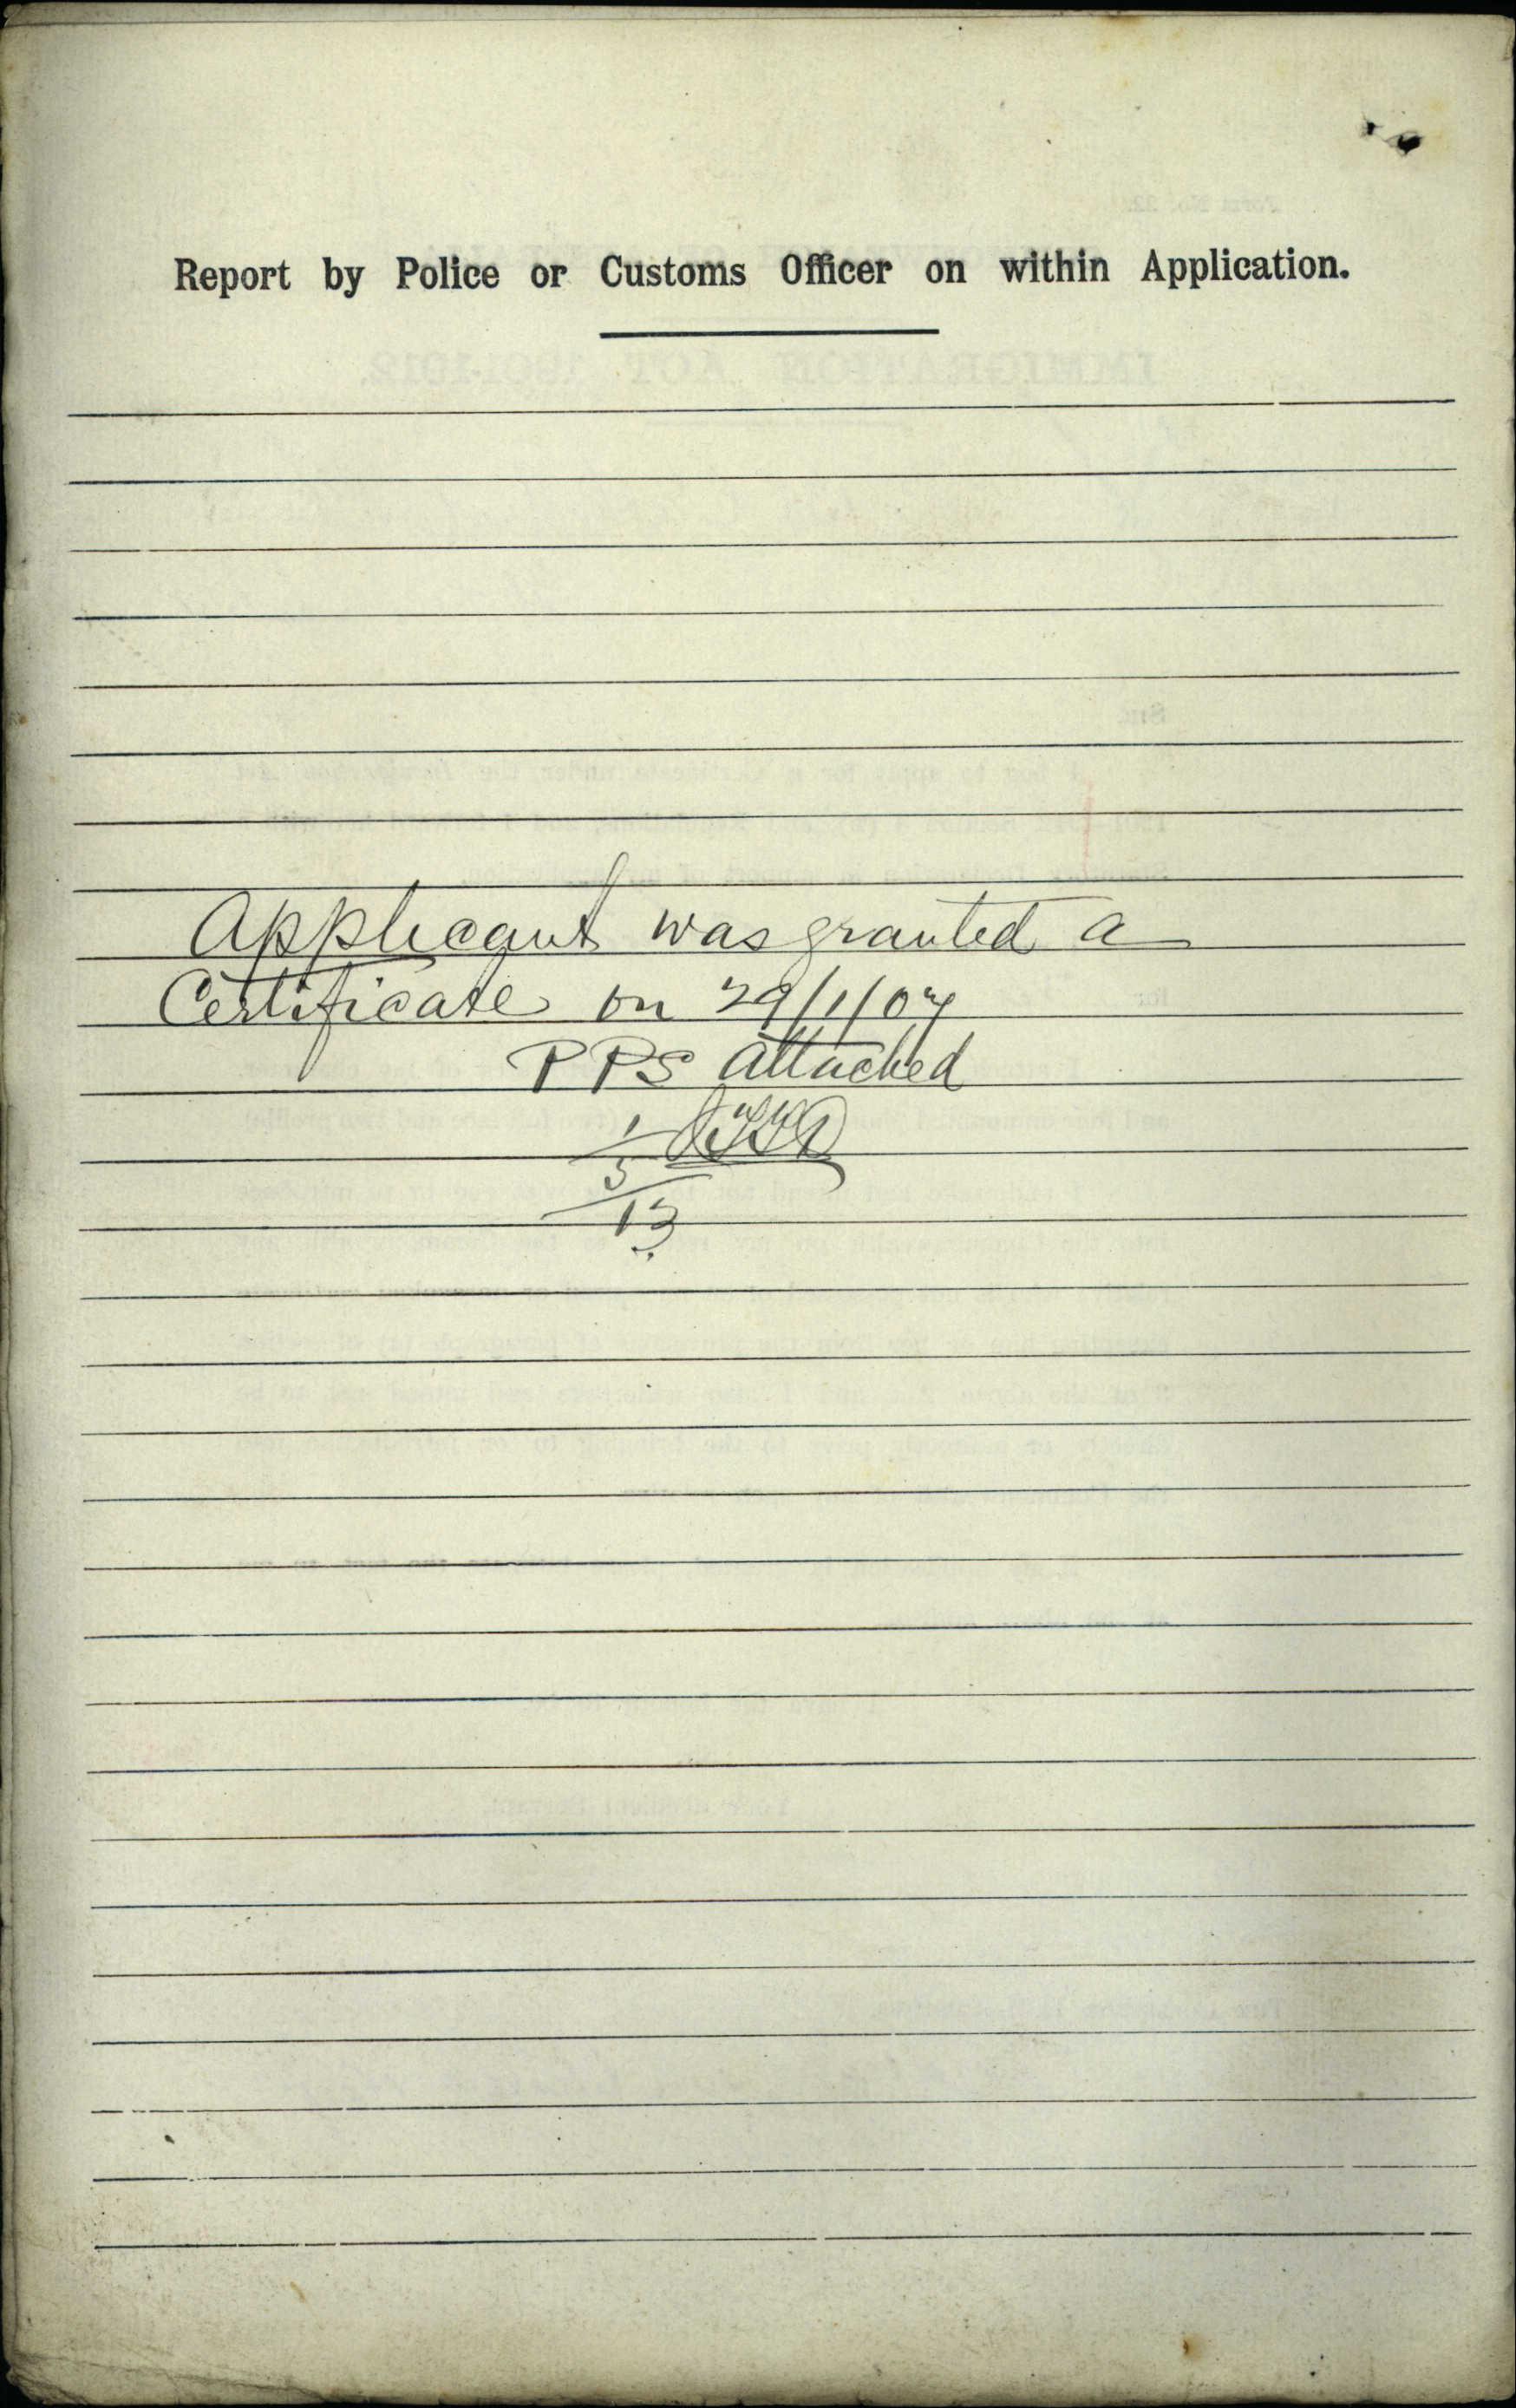 Report by Police or Customs Officer on within Application.
Applicant was granted a
Certificate on 29/1/07
PPS attached
1/5/13